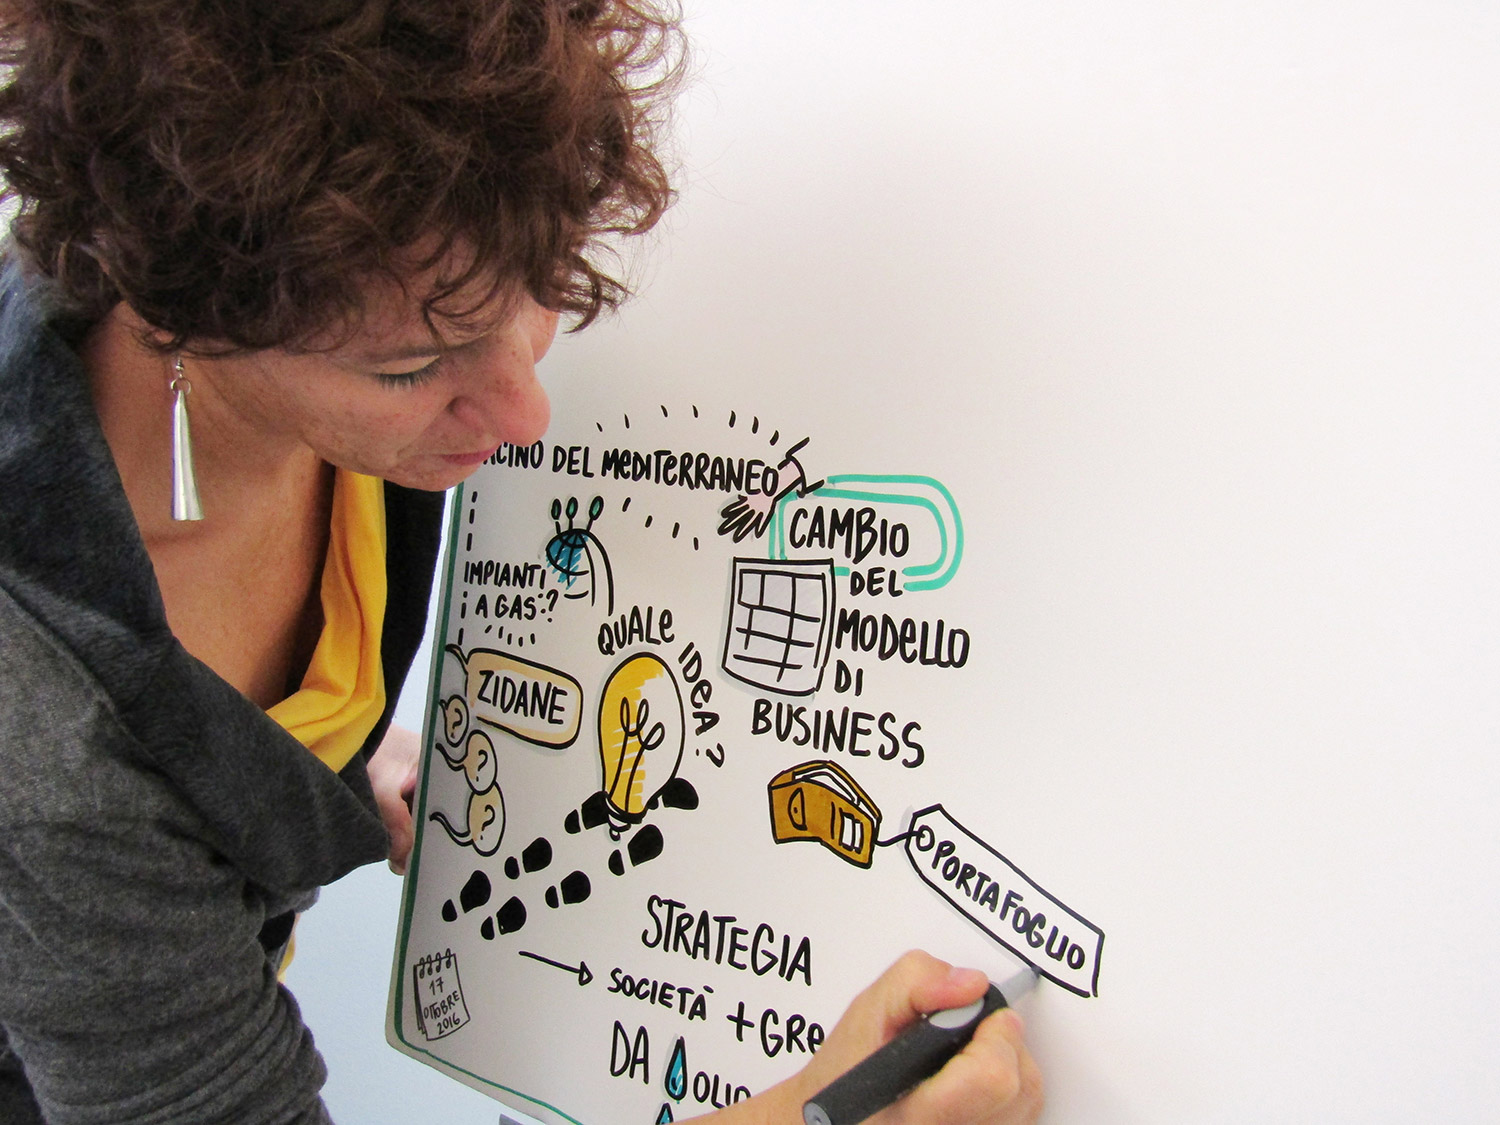 DEL MEDITERRANEO
CAMBIO
DEL
MODELLO
DI
BUSINESS
IMPIANTI
A GAS?
QUALE IDEA?
ZIDANE
?
?
?
PORTAFOGLIO
STRATEGIA
SOCIETÀ + GRE
DA OLIO
17
OTTOBRE
2016